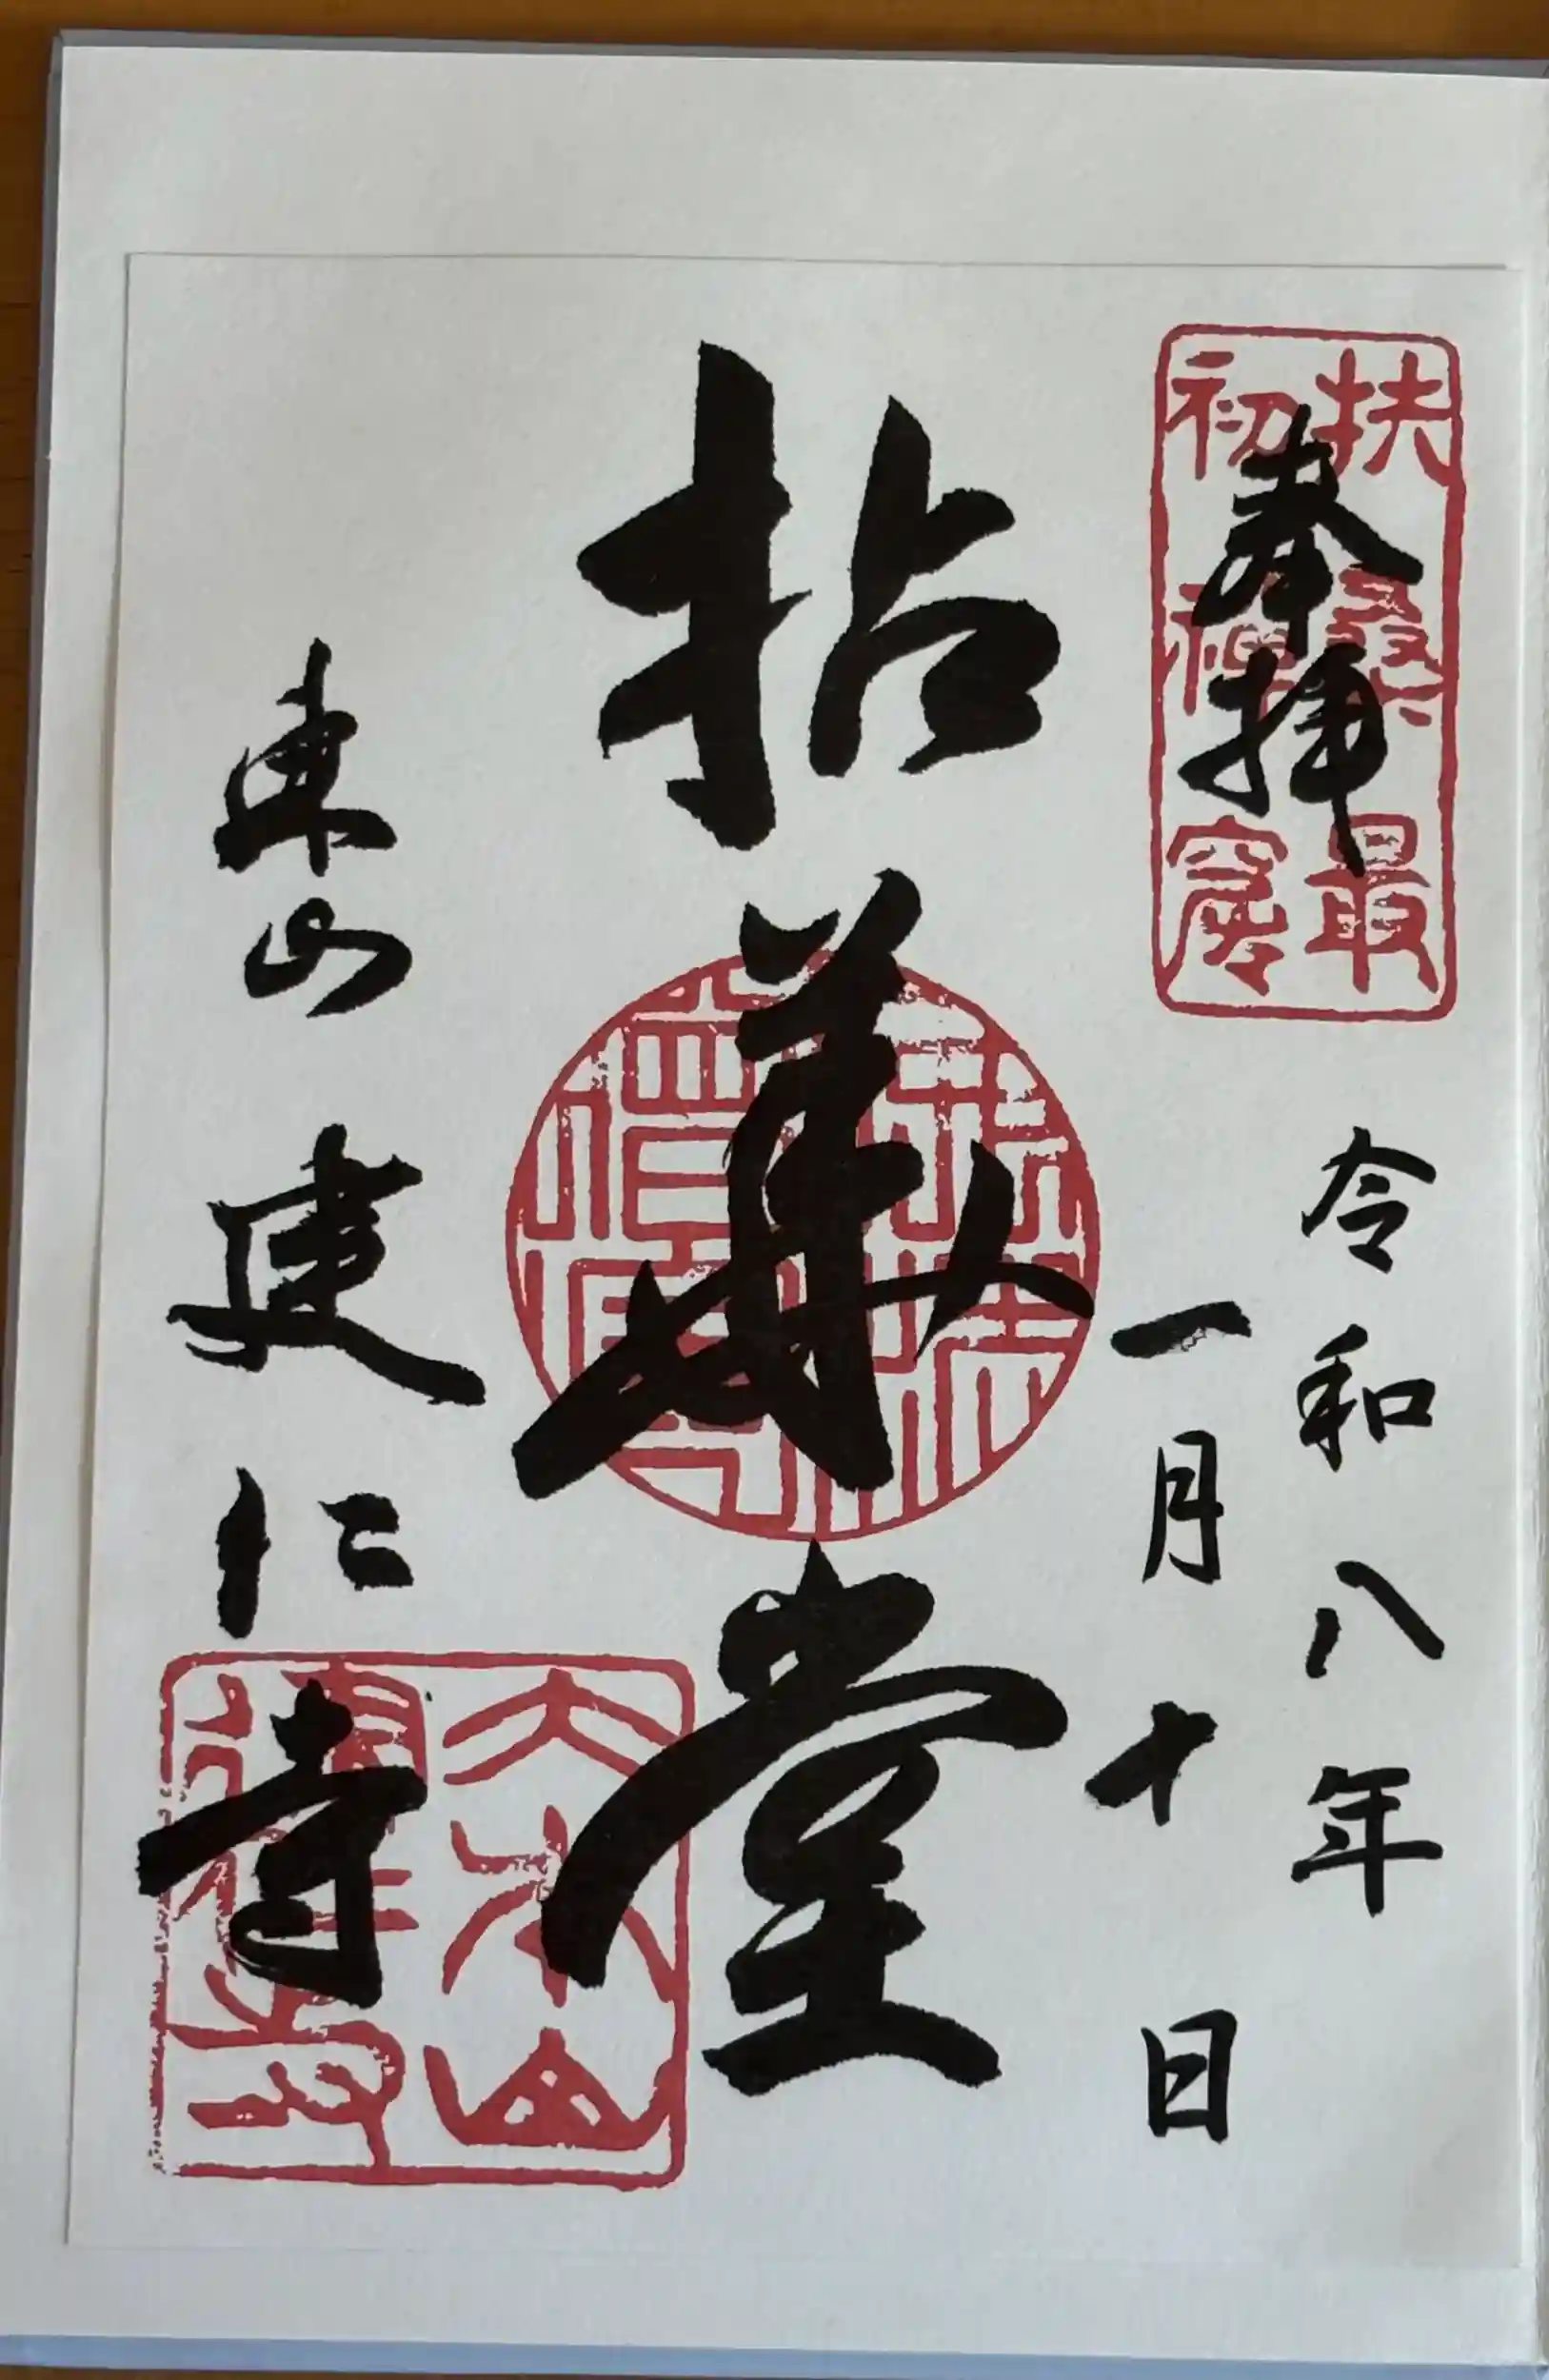 奉拝
扶桑最
初禅窟
令和八年
一月十日
拈華堂
佛法僧寳
東山 建仁寺
大本山
建仁寺印